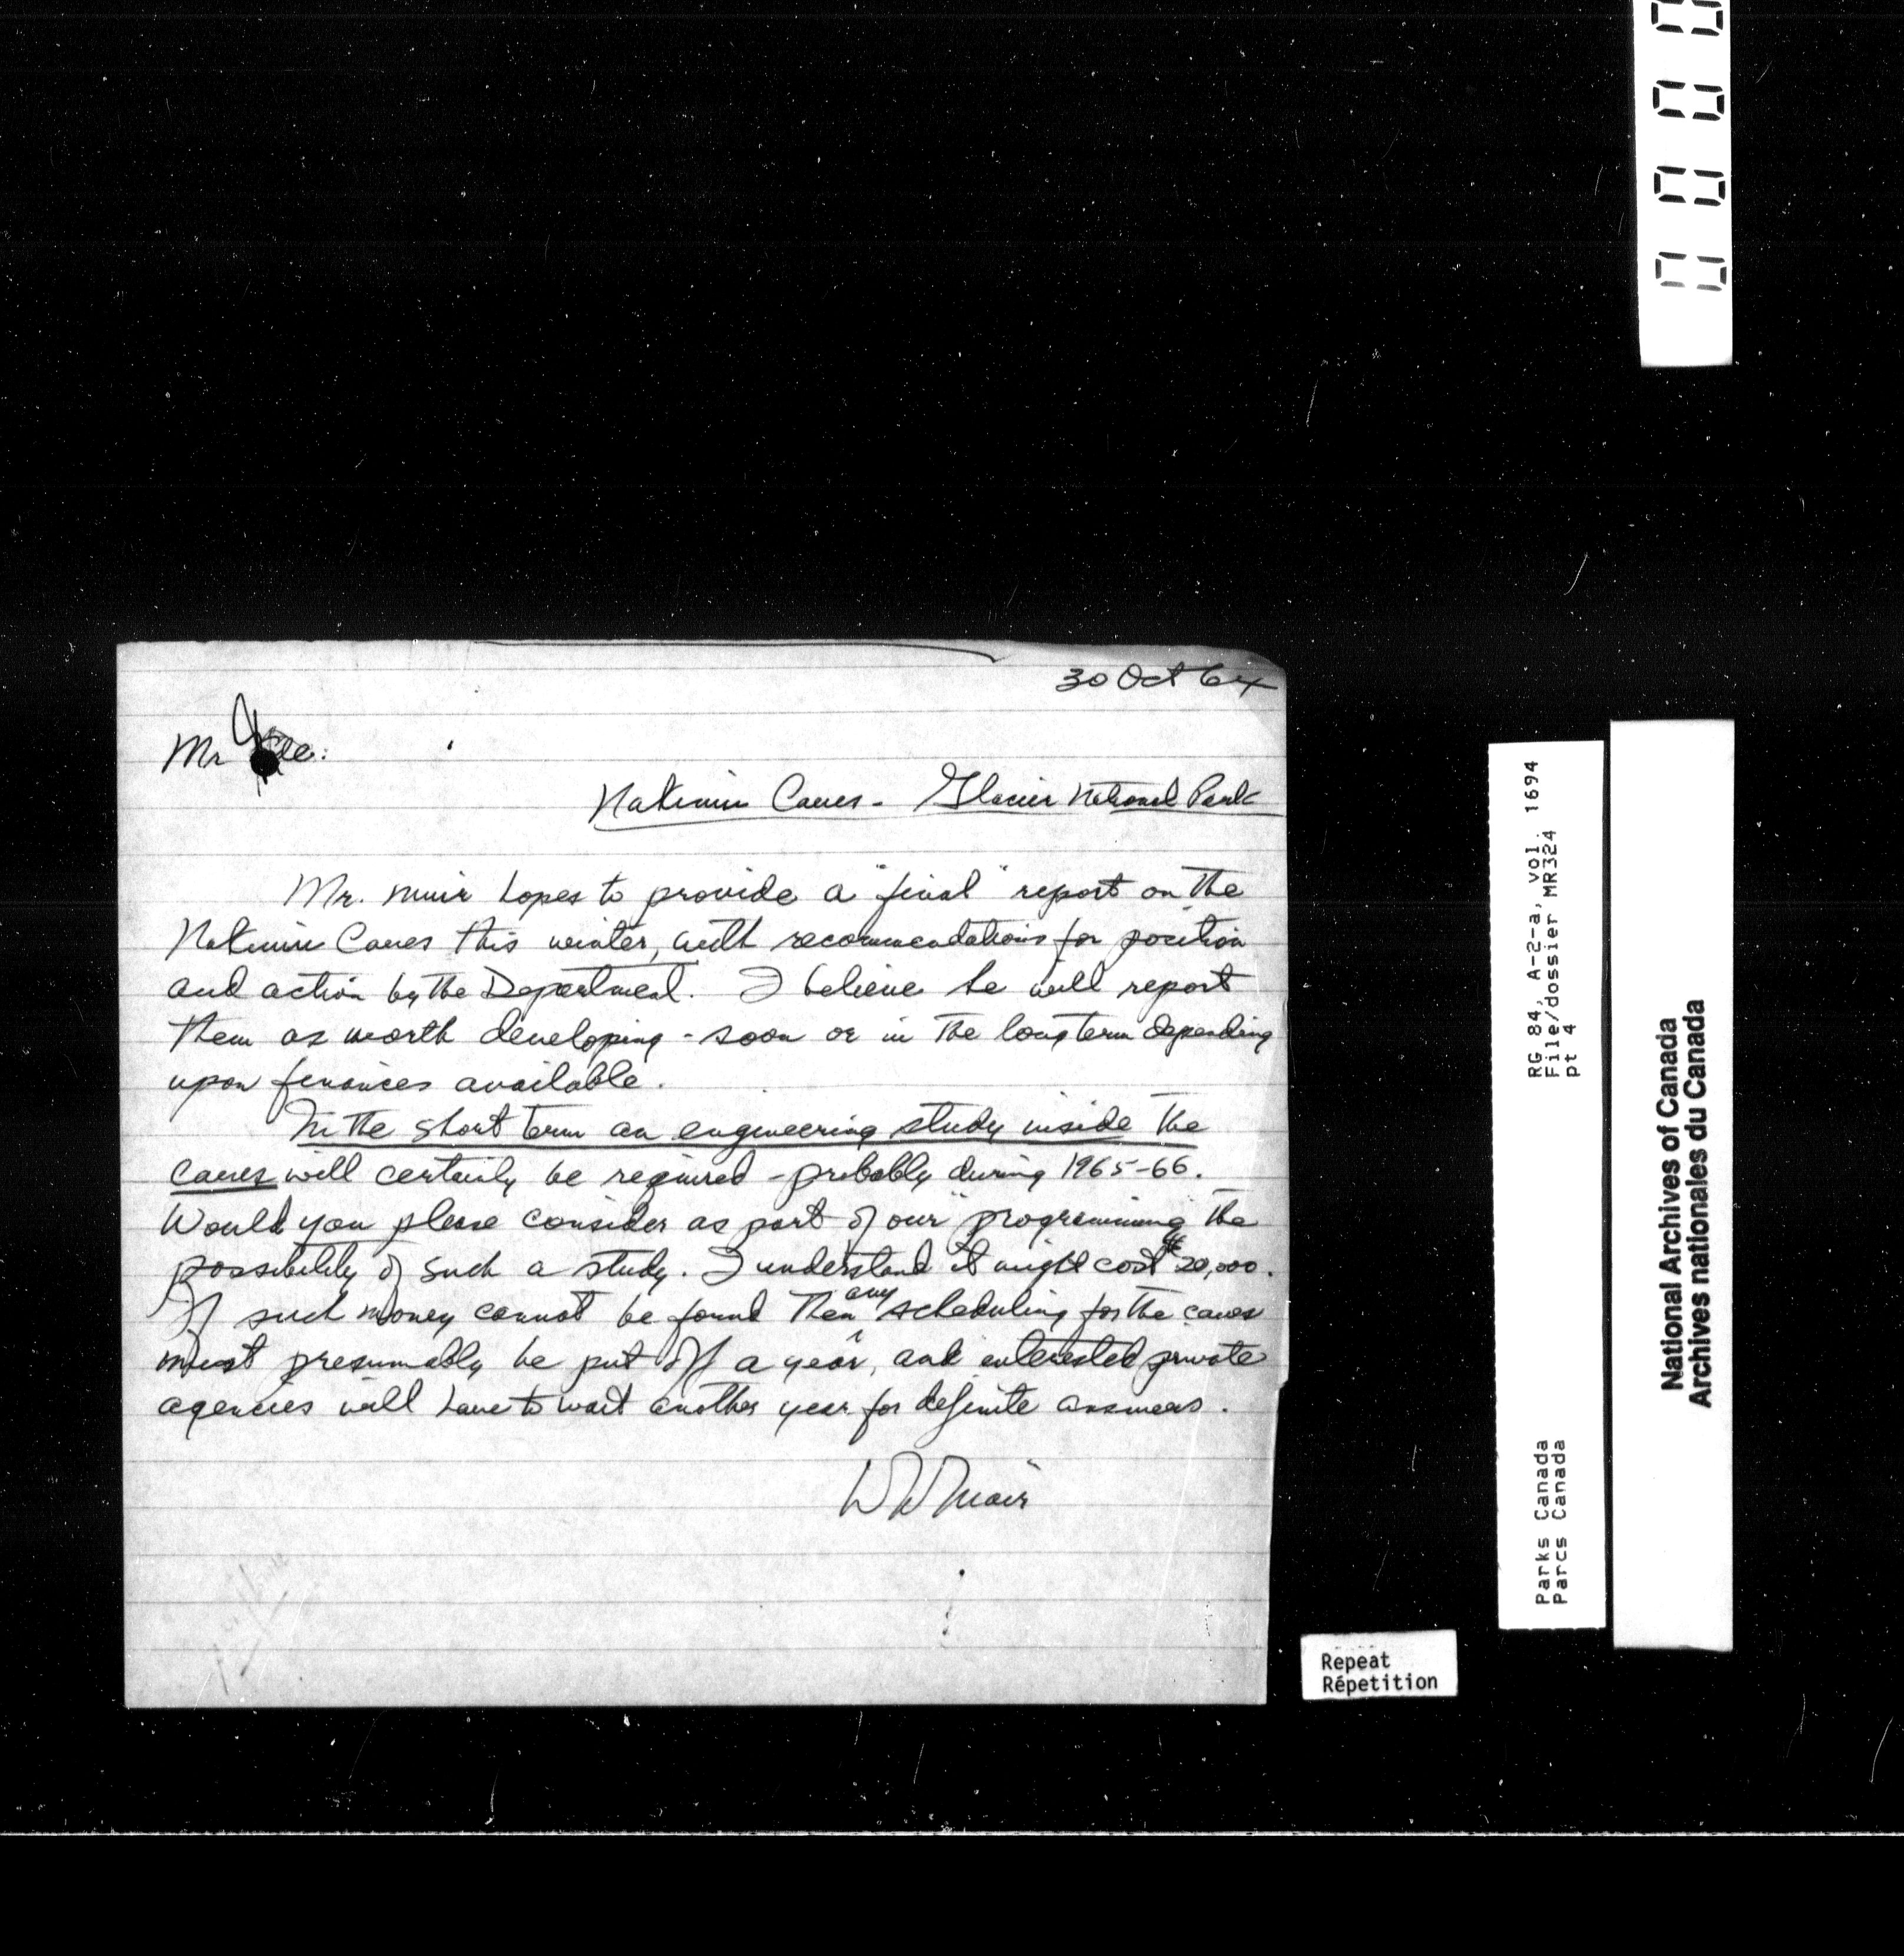 30 Oct 64
Mr
Nakimu Caves - Glacier National Park
Mr. Muir hopes to provide a "final" report on the
Nakimu Caves this winter, with recommendations for position
and action by the Department. I believe he will report
them as worth developing - soon or in the long term depending
upon finances available.
In the short term an engineering study inside the
caves will certainly be required - probably during 1965-66.
Would you please consider as part of our "programming" the
possibility of such a study. I understand it might cost $20,000.
If such money cannot be found then any scheduling for the caves
must presumably be put off a year, and interested private
agencies will have to wait another year for definite answers.
Repeat
Répetition
RG 84, A-2-a, vol. 1694
File/dossier MR324
pt 4
Parks Canada
Parcs Canada
National Archives of Canada
Archives nationales du Canada